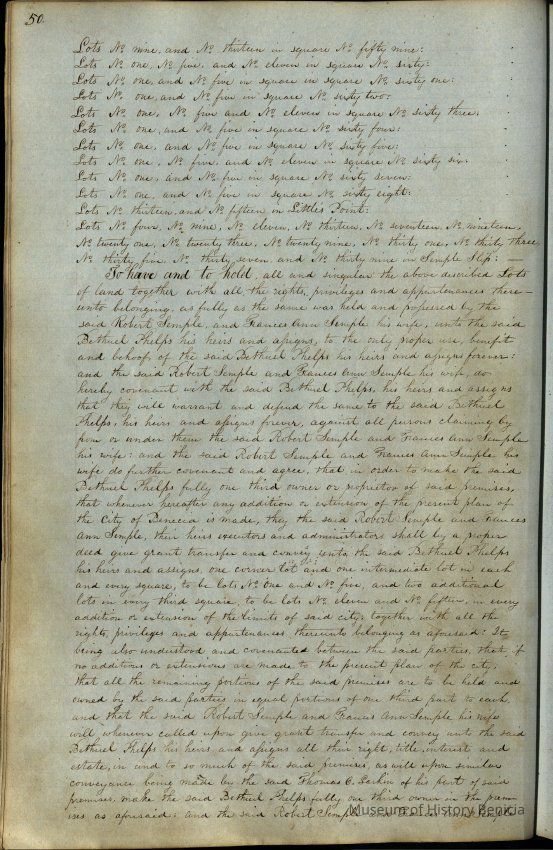 50.
Lots No. nine, and No. thirteen in square No. fifty nine:
Lots No. one, No. five, and No. eleven in square No. sixty:
Lots No. one, and No. five in square in square No. sixty one:
Lots No. one, and No. five in square No. sixty two:
Lots No. one, No. five and No. eleven in square No. sixty three:
Lots No. one, and No. five in square No. sixty four:
Lots No. one, and No. five in square No. sixty five:
Lots No. one, No. five, and No. eleven in square No. sixty six:
Lots No. one, and No. five in square No. sixty seven:
Lots No. one, and No. five in square No. sixty eight:
Lots No. thirteen, and No. fifteen in Littles Point:
Lots No. four, No. nine, No. eleven, No. thirteen, No. seventeen, No. nineteen,
No. twenty one, No. twenty three, No. twenty nine, No. thirty one, No. thirty three,
No. thirty five, No. thirty seven, and No. thirty nine in Semple Slip: —
To have and to hold, all and singular the above described Lots
of land together with all the rights, privileges and appurtenances there-
unto belonging, as fully as the same was held and possessed by the
said Robert Semple, and Frances Ann Semple his wife, unto the said
Bethuel Phelps his heirs and assigns, to the only proper use, benefit
and behoof of the said Bethuel Phelps his heirs and assigns forever:
and the said Robert Semple and Frances Ann Semple his wife, do
hereby covenant with the said Bethuel Phelps, his heirs and assigns
that they will warrant and defend the same to the said Bethuel
Phelps, his heirs and assigns forever, against all persons claiming by
from or under them the said Robert Semple and Frances Ann Semple
his wife: and the said Robert Semple and Frances Ann Semple his
wife do further covenant and agree, that in order to make the said
Bethuel Phelps fully one third owner or proprietor of said premises,
that whenever hereafter any addition or extension of the present plan of
the City of Benecia is made, they the said Robert Semple and Frances
Ann Semple, their heirs executors and administrators shall by a proper
deed give grant transfer and convey unto the said Bethuel Phelps
his heirs and assigns, one corner lot and one intermediate lot in each
and every square, to be lots No. one and No. five, and two additional
lots in every third square, to be lots No. eleven and No. fifteen, in every
addition or extension of the limits of said city, together with all the
rights, privileges and appurtenances thereunto belonging as aforesaid: It
being also understood and covenanted between the said parties, that if
no additions or extensions are made to the present plan of the city,
that all the remaining portions of the said premises are to be held and
owned by the said parties in equal portions of one third part to each,
and that the said Robert Semple and Frances Ann Semple his wife
will whenever called upon give grant transfer and convey unto the said
Bethuel Phelps his heirs and assigns all their right, title, interest and
estate, in and to so much of the said premises, as will upon similar
conveyance being made by the said Thomas O. Larkin of his part of said
premises, make the said Bethuel Phelps fully one third owner in the prem-
ises as aforesaid: and the said Robert Semple and Frances Ann Semple
Museum of History Benicia